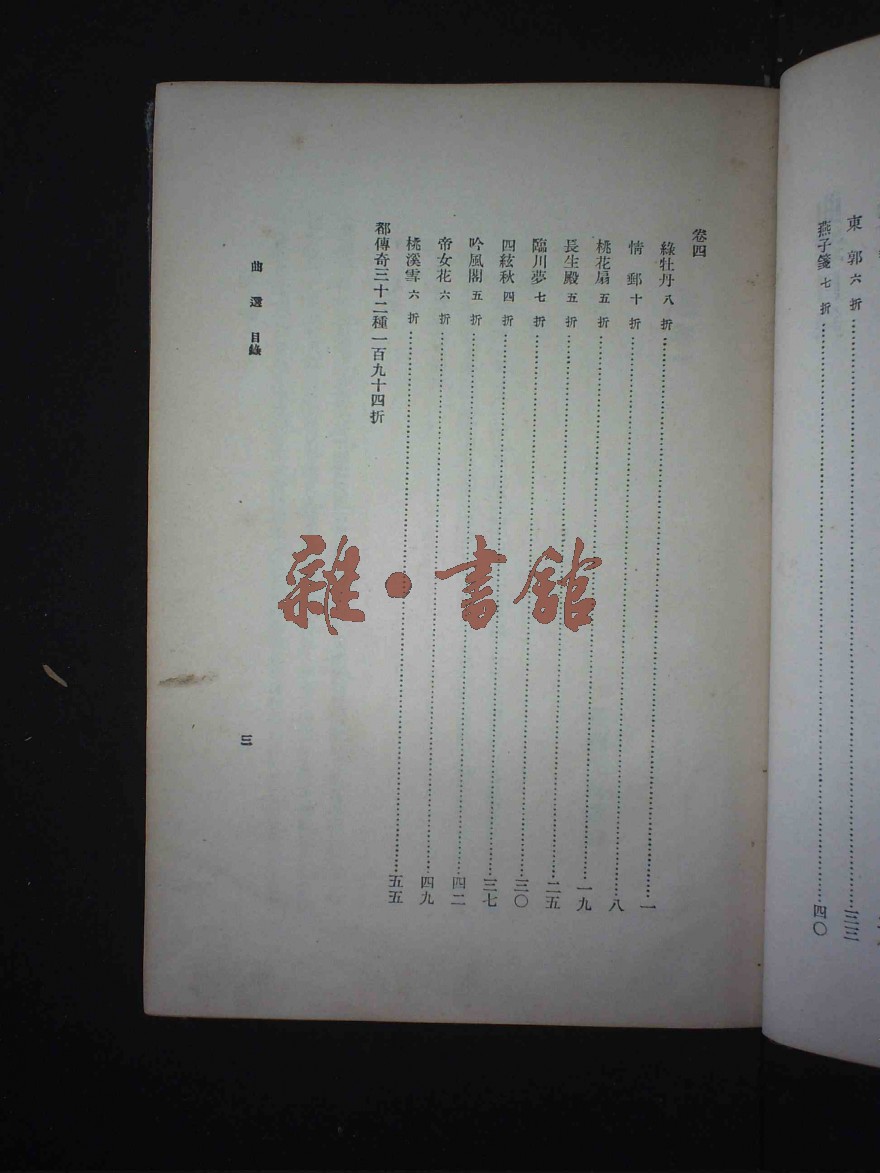 東郭六折……三三
燕子箋七折……四〇
卷四
綠牡丹八折……一
情郵十折……八
桃花扇五折……一九
長生殿五折……二五
臨川夢七折……三〇
四絃秋四折……三七
吟風閣五折……四二
帝女花六折……四九
桃溪雪六折……五五
都傳奇三十二種一百九十四折
曲選目錄
三
雜·書館